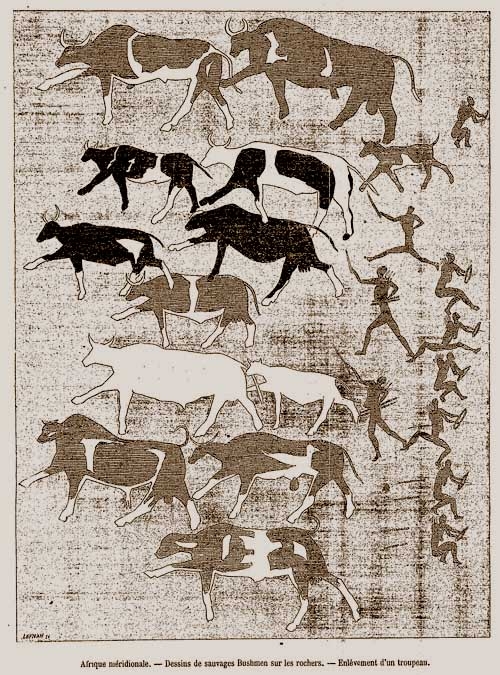 Afrique méridionale. — Dessins de sauvages Bushmen sur les rochers. — Enlèvement d'un troupeau.